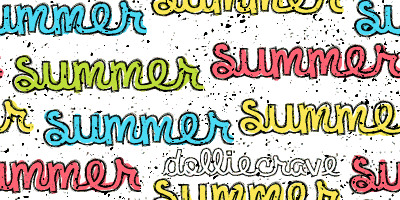 summer summer summer
summer summer
summer summer
summer dolliecrave summer
summer